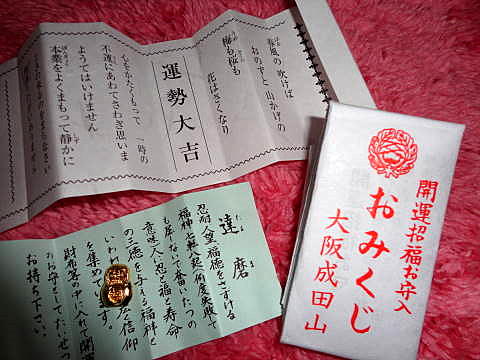 春風の 吹けば
おのずと 山かげの
梅も桜も
花はさくなり
運勢大吉
心をかたくもって 一時の
不運にあわてさわぎ思いま
ようてはいけません
本業をよくまもって静かに
開運招福お守入
おみくじ
大阪成田山
達磨
忍耐人望福徳をさずける
福神七転八起何度失敗して
奮いたつの
意味で人に忍と福と寿命
の三徳を与える福神と
いわれ 広く信仰
を集めています。
財布等の中に入れて開運
のお守としてたいせつに
お持ち下さい。